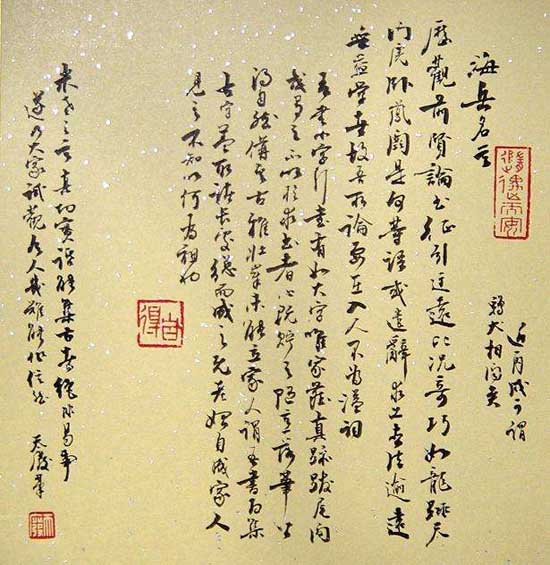 海岳名言
歷觀前賢論書征引迂遠比況奇巧如龍跳天
門虎臥鳳闕是何等語或遣辭求工去法逾遠
無益學者故吾所論要在入人不為溢詞
吾書小字行書有如大字唯家藏真跡跋尾間
或有之不以與求書者心既貯之隨意落筆皆
得自然備其古雅壯歲未能立家人謂吾書為集
古字蓋取諸長處總而成之既老始自成家人
見之不知以何為祖也
米老之言真切實能集古書絕非易事
遂乃大家試觀今人能作